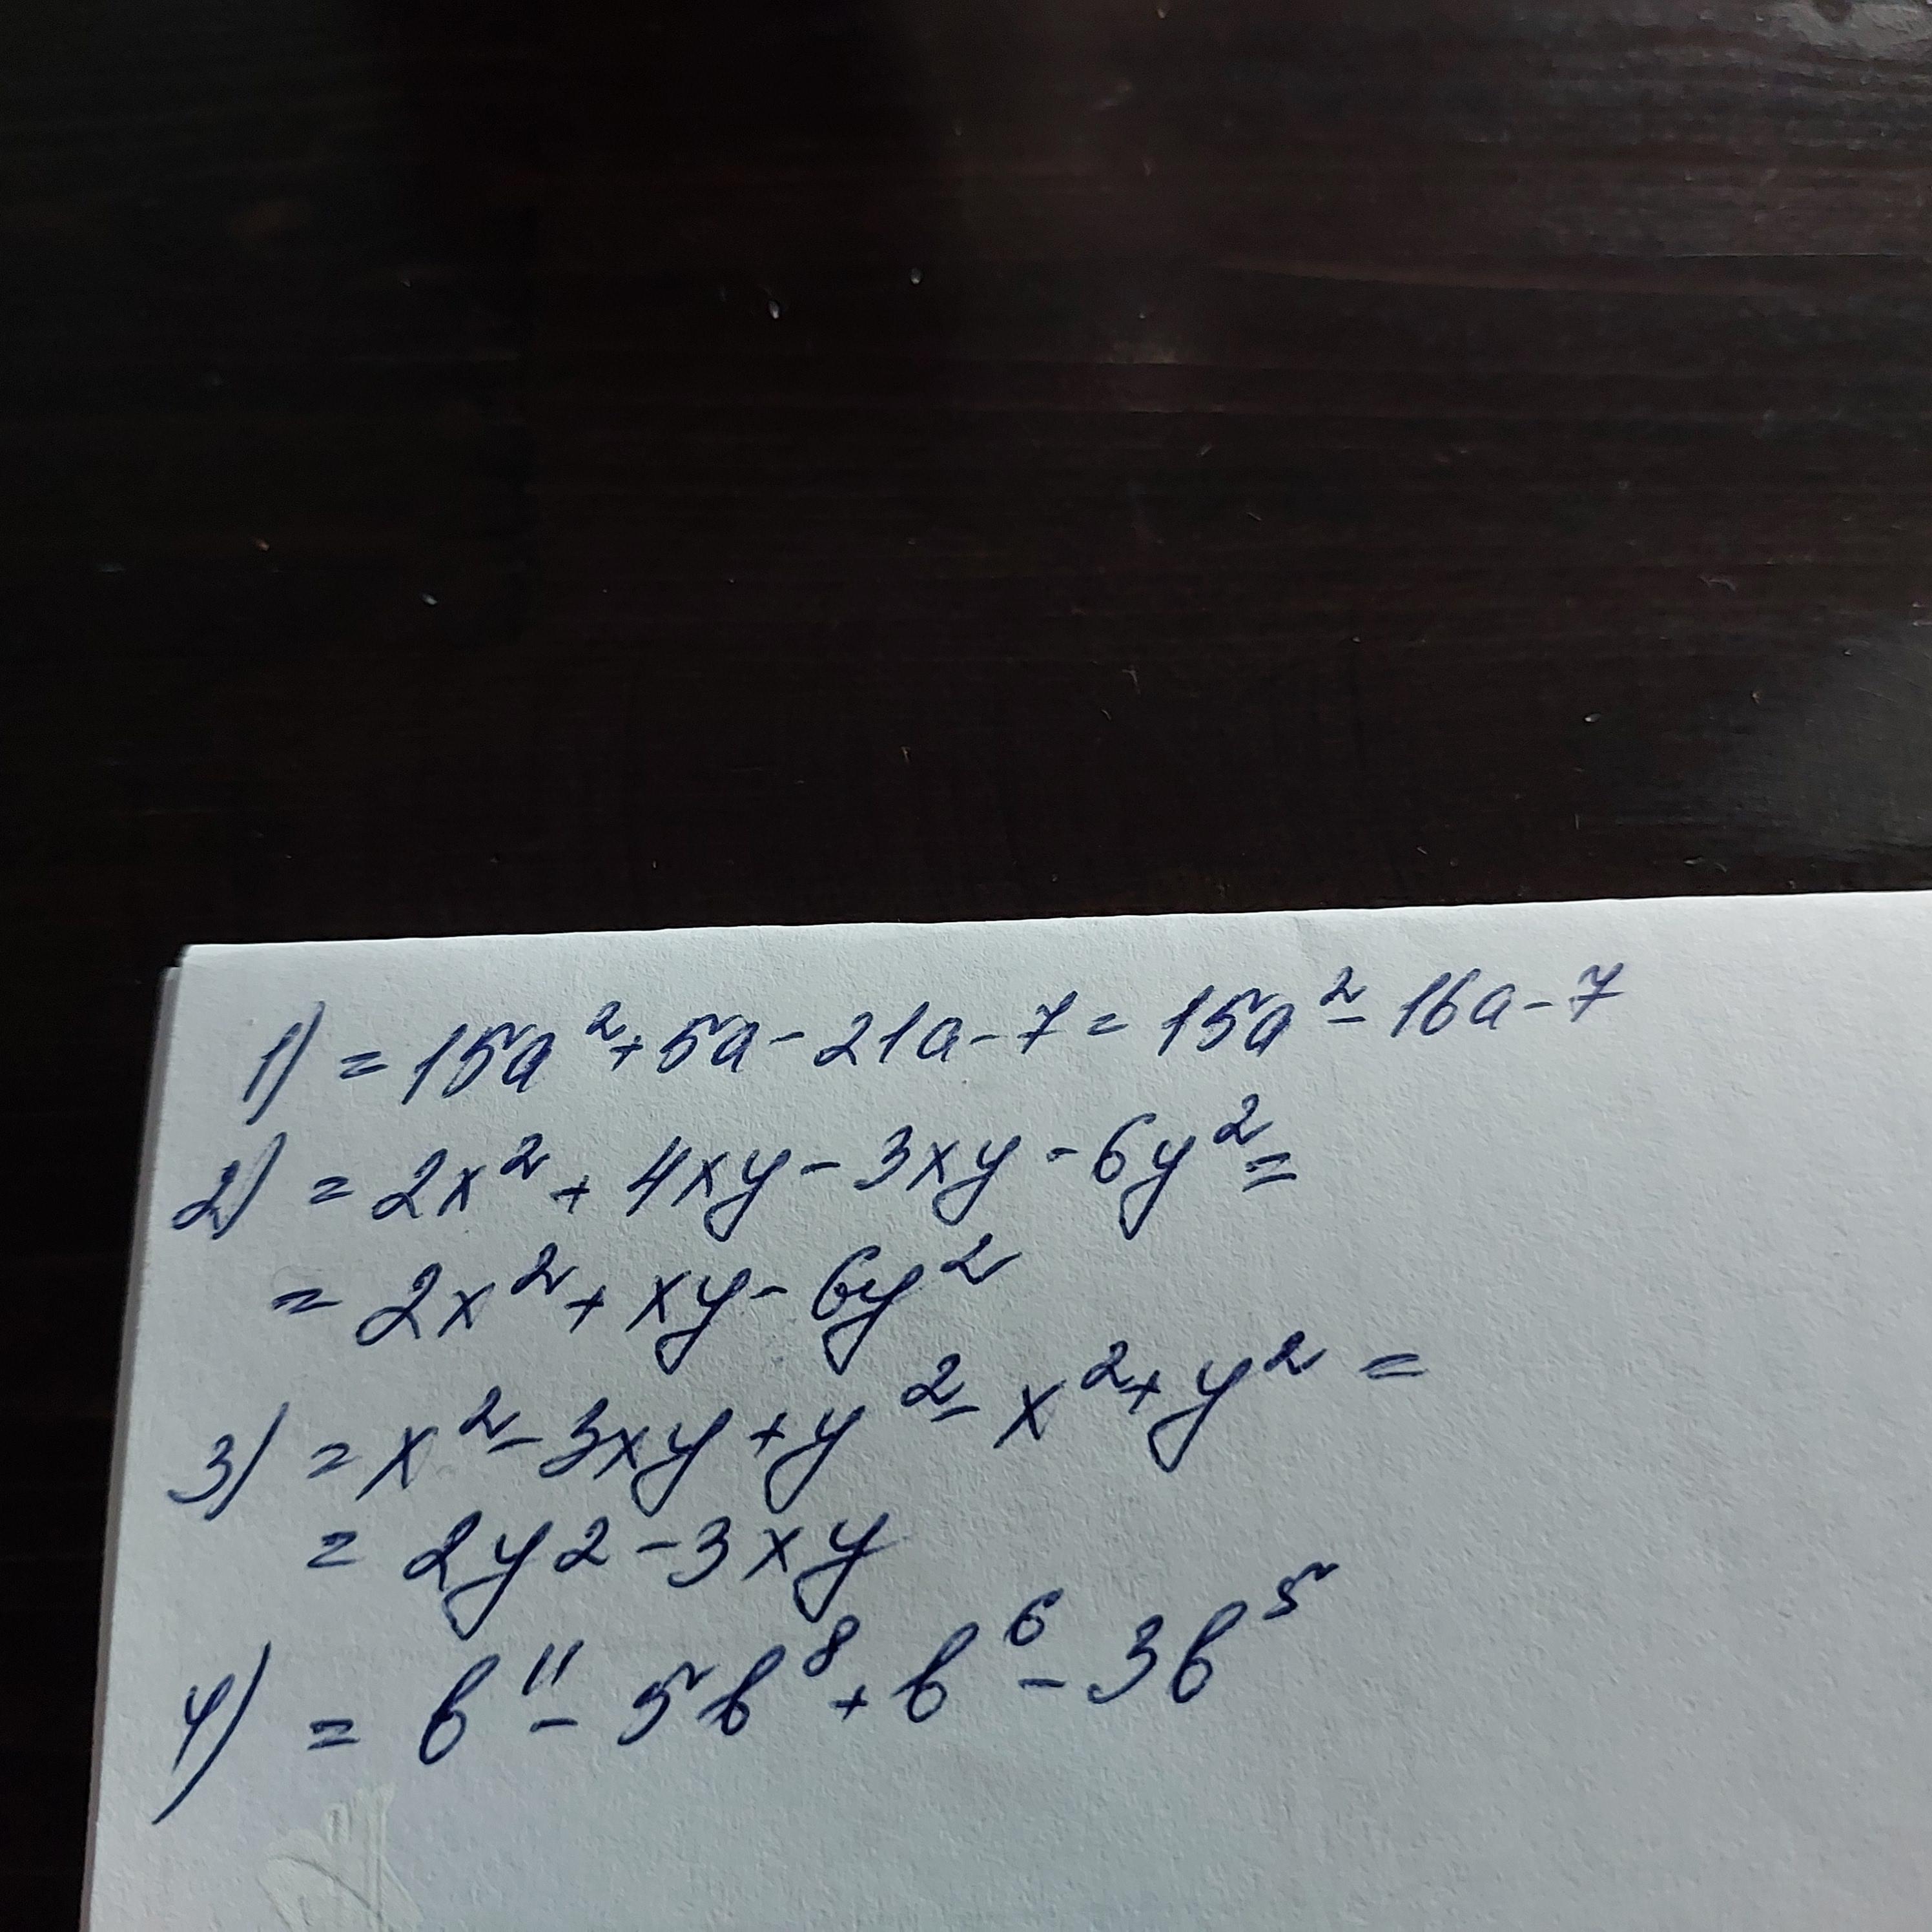 1) = 15a² + 5a - 21a - 7 = 15a² - 16a - 7
2) = 2x² + 4xy - 3xy - 6y² =
= 2x² + xy - 6y²
3) = x² - 3xy + y² - x² + y² =
= 2y2 - 3xy
4) = b¹¹ - 5b⁸ + b⁶ - 3b⁵